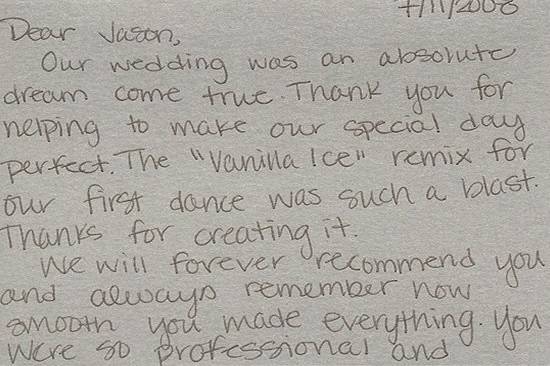 7/11/2008
Dear Jason,
Our wedding was an absolute
dream come true. Thank you for
helping to make our special day
perfect. The "Vanilla Ice" remix for
our first dance was such a blast.
Thanks for creating it.
We will forever recommend you
and always remember how
smooth you made everything. You
were so professional and